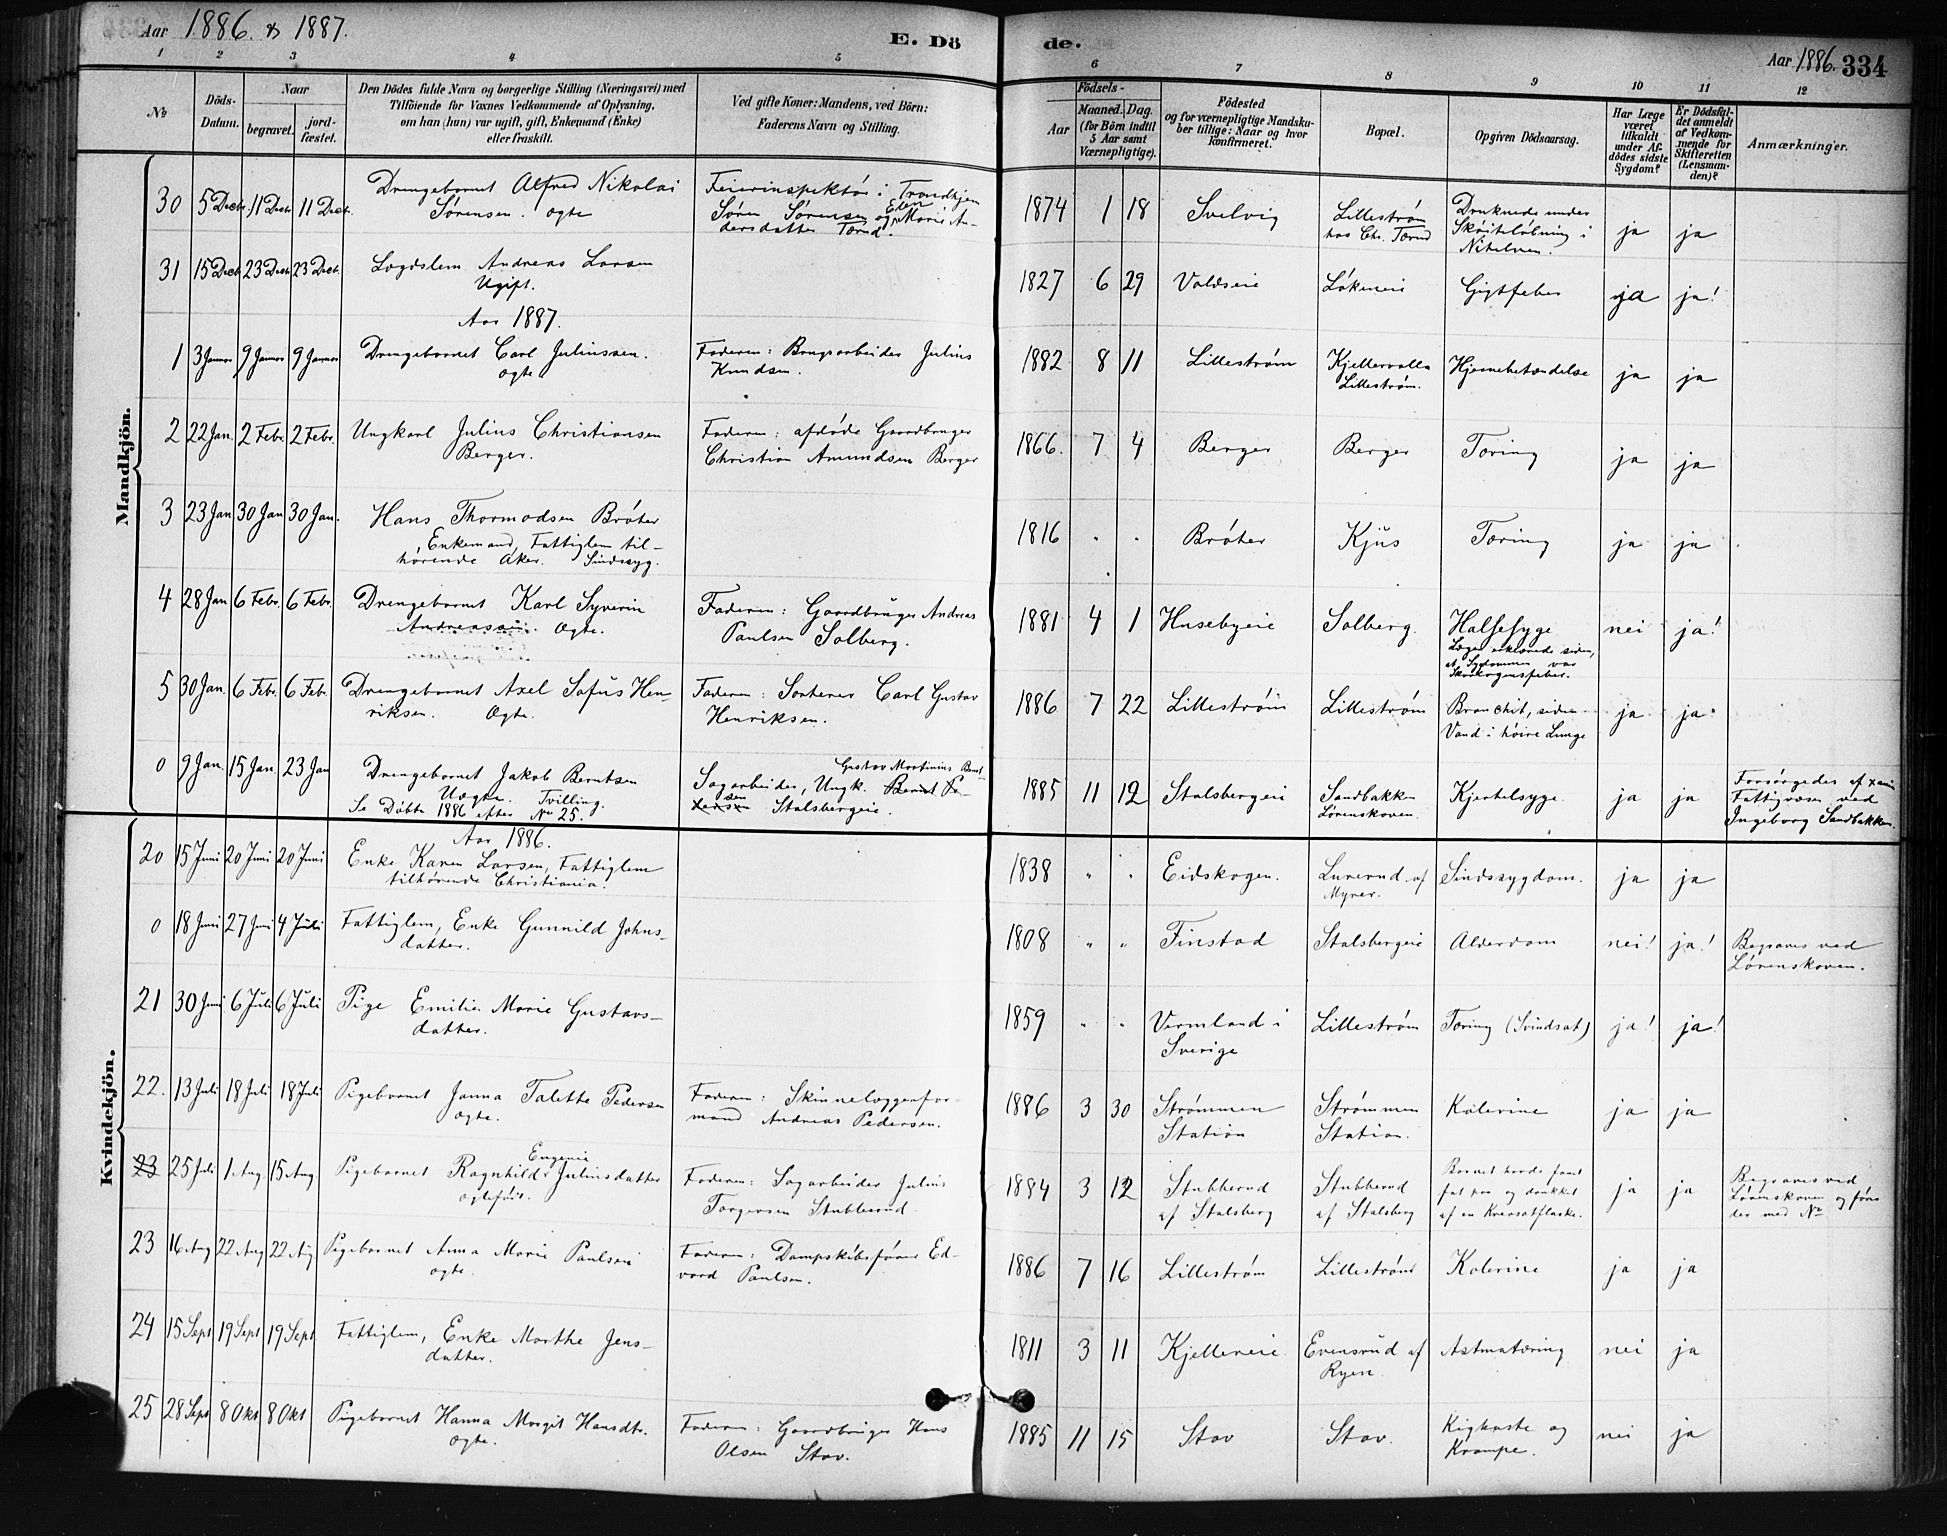 Aar 1886. & 1887.
E. Dö
de.
Aar 1886. 334
1 2 3 4 5 6 7 8 9 10 11 12
№
Döds-Datum.
Naar
begravet.
jord-fæstet.
Den Dödes fulde Navn og borgerlige Stilling (Næringsvei) med
Tilföiende for Voxnes Vedkommende af Oplysning,
om han (hun) var ugift, gift, Enkemand (Enke)
eller fraskilt.
Ved gifte Koner: Mandens, ved Börn:
Faderens Navn og Stilling.
Födsels-
Aar
Maaned. Dag.
(for Börn indtil
5 Aar samt
Værnepligtige).
Födested
og for værnepligtige Mandska-
ber tillige: Naar og hvor
konfirmeret.
Bopæl.
Opgiven Dödsaarsag.
Har Læge
været
tilkaldt
under Af-
dödes sidste
Sygdom?
Er Dödsfal-
det anmeldt
af Vedkom-
mende for
Skifteretten
(Lensman-
den)?
Anmærkninger.
Mandkjön.
30 5 Decbr. 11 Decbr. 11 Decbr. Drengebarnet Alfred Nikolai
Sørensen. ægte
Feierinspektør i Trondhjem
Søren Sørensen og Elen Marie An-
dersdatter Tærud.
1874 1 18 Svelvig
Lillestrøm
hos Chr. Tærud
Druknede under
Skøiteløbning i
Nitelven.
ja ja
31 15 Decbr. 23 Decbr. 23 Decbr. Lægdslem Andreas Larsen
Ugift.
1827 6 29 Valdseie Løkeneie Gigtfeber ja ja!
Aar 1887.
1 3 Januar 9 Januar 9 Januar Drengebarnet Carl Juliussen.
ægte
Faderen: Brugsarbeider Julius
Knudsen.
1882 8 11 Lillestrøm
Kjellervolla
Lillestrøm.
Hjernebetændelse ja ja
2 22 Jan. 2 Febr. 2 Febr. Ungkarl Julius Christiansen
Berger.
Faderen: afdøde Gaardbruger
Christian Amundsen Berger
1866. 7 4 Berger Berger Tæring ja ja
3 23 Jan 30 Jan 30 Jan. Hans Thormodsen Brøter
Enkemand, Fattiglem til-
hørende Aker. Sindssyg.
1816 " " Brøter Kjus Tæring ja ja
4 28 Jan 6 Febr. 6 Febr. Drengebarnet Karl Syverin
Andreassen. Ægte.
Faderen: Gaardbruger Andreas
Paulsen Solberg.
1881 4 1 Husebyeie Solberg.
Halssyge
Lægen erklærede siden,
at Sygdommen var
Skarlagensfeber.
nei ja!
5 30 Jan. 6 Febr. 6 Febr. Drengebarnet Axel Sofus Hen-
riksen. Ægte.
Faderen: Sorterer Carl Gustav
Henriksen.
1886 7 22 Lillestrøm Lillestrøm
Bronchit, siden
Vand i høire Lunge
ja ja
0 9 Jan. 15 Jan. 23 Jan Drengebarnet Jakob Berntsen
Uægte. Tvilling.
Se Døbte 1886 efter No 25.
Gustav Martinius Bernt-
Sagarbeider, Ungk. Bernt Pe-
sen
tersen Stalsbergeie.
1885 11 12 Stalsbergeie
Sandbakken
Lørenskoven.
Kjertelsyge ja ja
Forsørgedes af
Fattigvæsen ved
Ingeborg Sandbakken.
Kvindekjön.
Aar 1886.
20 15 Juni 20 Juni 20 Juni Enke Karen Larsen, Fattiglem
tilhørende Christiania.
1838 " " Eidskogen.
Lurerud af
Myrer.
Sindssygdom. ja ja
0 18 Juni 27 Juni 4 Juli Fattiglem, Enke Gunnild Johns-
datter.
1808 " " Finstad Stalsbergeie Alderdom nei! ja!
Begraves ved
Lørenskoven.
21 30 Juni 6 Juli 6 Juli Pige Emilie Marie Gustavs-
datter.
1859 " "
Vermland i
Sverige
Lillestrøm Tæring (Svindsot) ja! ja!
22. 13 Juli 18 Juli 18 Juli Pigebarnet Janna Talette Pedersen
ægte.
Faderen: Skinnelæggerfor-
mand Andreas Pedersen.
1886 3 30
Strømmen
Station
Strømmen
Station.
Kolerine ja ja
23 25 Juli 1 Aug 15 Aug
Eugenie
Pigebarnet Ragnhild Juliusdatter
Faderen: Sagarbeider Julius
Torgersen Stubberud.
1884 3 12
Stubberud
af Stalsberg
Stubberud
af Stalsberg
Barnet havde faaet
fat paa og drukket
af en Kreosotflaske.
ja ja
Begraves ved
Lørenskoven og føres
der med No
23 16 Aug 22 Aug 22 Aug Pigebarnet Anna Marie Paulsen
ægte.
Faderen: Dampskibsfører Ed-
vard Paulsen.
1886 7 16 Lillestrøm Lillestrøm Kolerine ja ja
24 15 Sept 19 Sept 19 Sept Fattiglem, Enke Marthe Jens-
datter.
1811 3 11 Kjellereie
Evensrud af
Ryen.
Astmatæring nei ja
25 28 Sept 8 Okt 8 Okt Pigebarnet Hanna Margit Hansdtr.
ægte.
Faderen: Gaardbruger Hans
Olsen Stav.
1885 11 15 Stav Stav.
Kighoste og
Krampe.
nei ja